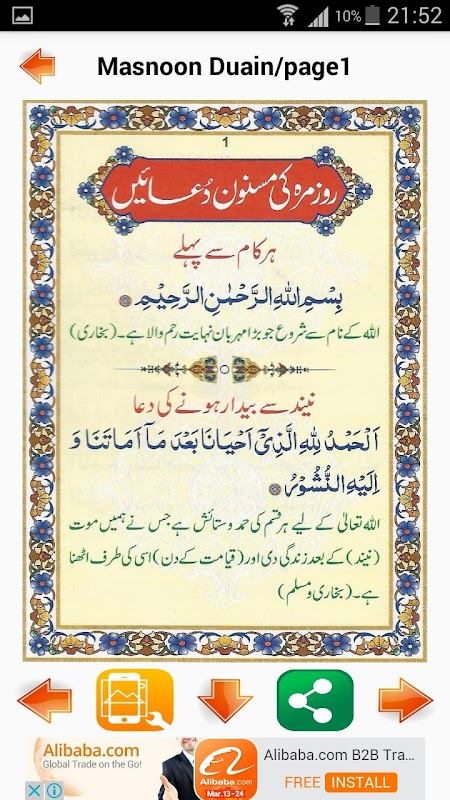 10% 21:52
Masnoon Duain/page1
1
روزمرہ کی مسنون دُعائیں
ہر کام سے پہلے
بِسْمِ اللهِ الرَّحْمٰنِ الرَّحِيْمِ
اللہ کے نام سے شروع جو بڑا مہربان نہایت رحم والا ہے۔ (بخاری)
نیند سے بیدار ہونے کی دعا
اَلْحَمْدُ لِلّٰهِ الَّذِيْٓ اَحْيَانَا بَعْدَ مَآ اَمَاتَنَا وَ
اِلَيْهِ النُّشُوْرُ
اللہ تعالیٰ کے لیے ہر قسم کی حمد و ستائش ہے جس نے ہمیں موت
(نیند) کے بعد زندگی دی اور (قیامت کے دن) اسی کی طرف اٹھنا
ہے۔ (بخاری و مسلم)
Alibaba.com
Global Trade on the Go!
Alibaba.com
Mar.13-24
Alibaba.com B2B Tra...
FREE INSTALL